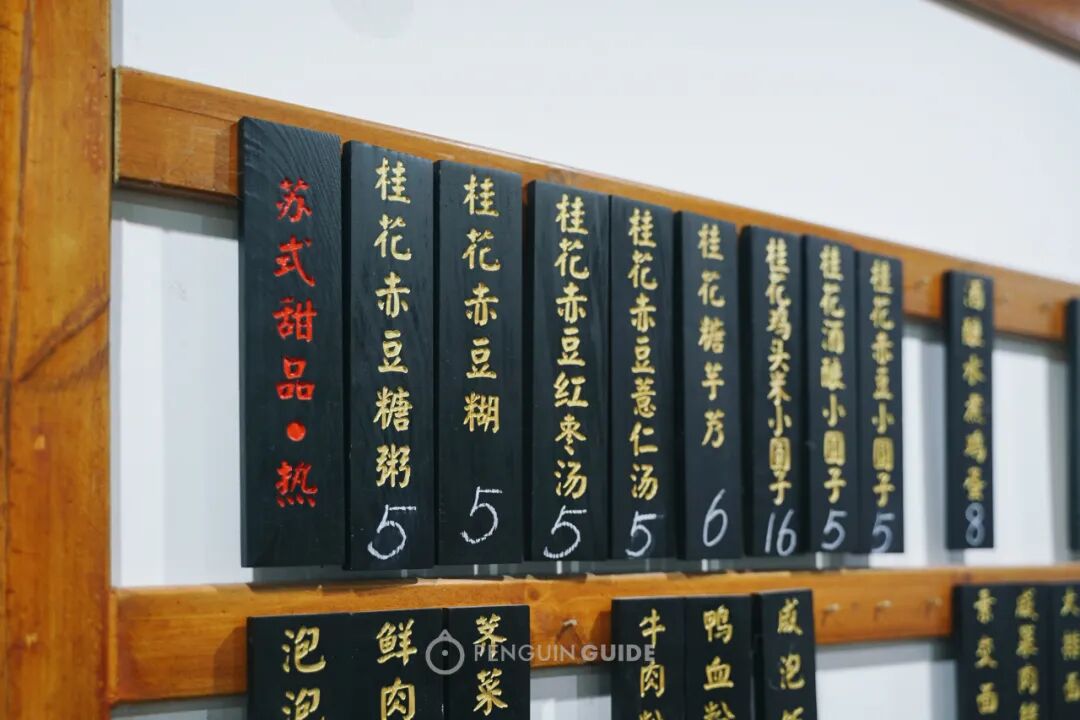 苏式甜品•热
桂花赤豆糖粥
5
桂花赤豆糊
5
桂花赤豆红枣汤
5
桂花赤豆薏仁汤
5
桂花糖芋艿
6
桂花鸡头米小圆子
16
桂花酒酿小圆子
5
桂花赤豆小圆子
5
酒酿水煮鸡蛋
8
泡泡
鲜肉
荠菜
牛肉粉
鸭血粉
咸泡饭
PENGUIN GUIDE